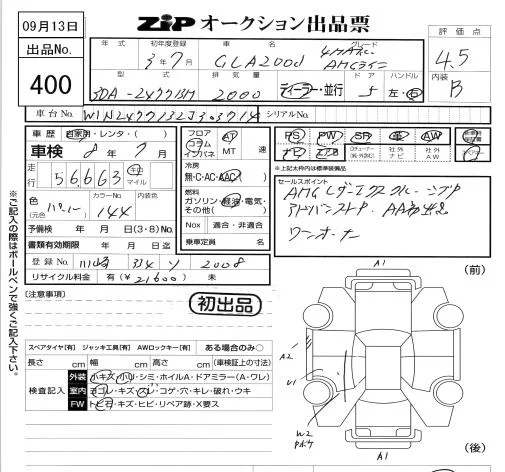 09月13日
ZIP オークション出品票
出品No.
400
年式 初年度登録 車名 グレード
3年7月 GLA200d 4MATIC AMGライン
型式 排気量 ドア ハンドル
3DA-247713M 2000 ディーラー・並行 5 左・右
評価点
4.5
内装
B
車台No. W1N2477132J303714 シリアルNo.
車歴 自家用・レンタ・( )
車検 8年7月
走行 56,663 キロ マイル
色 (元色) カラーNo. 144 内装色
予備検 年 月 日(3・8)No.
書類有効期限 年 月 日迄
登録No. 川崎 334 ソ 2008
リサイクル料金 有(¥21600) 未
フロア コラム インパネ AT MT 速
冷房
無・C・AC・AAC
燃料
ガソリン・軽油・電気・その他( )
Nox 適合・非適合
乗車定員 名
PS PW SR 革 AW
ナビ エアB TVチューナー(純・外含む) 社外ナビ 社外AW
*上記太枠内は標準装備品
セールスポイント
AMGレザーエクスクルーシブP
アドバンスドP. AA初出品
ワンオーナー
※ご記入の際はボールペンで強くご記入下さい。※
[注意事項]
初出品
スペアタイヤ[有] ジャッキ工具[有] AWロックキー[有] ある場合のみ○
長さ cm 幅 cm 高さ cm (車検証上の寸法)
検査記入
外装 小キズ・小凹・シミ・ホイルA・ドアミラー(A・ワレ)
室内 ヨゴレ・キズ・スレ・コゲ・穴・キレ・破れ・ウキ
FW トビ石・キズ・ヒビ・リペア跡・X要ス
A1
(前)
A2
U1
W2
A1
(後)